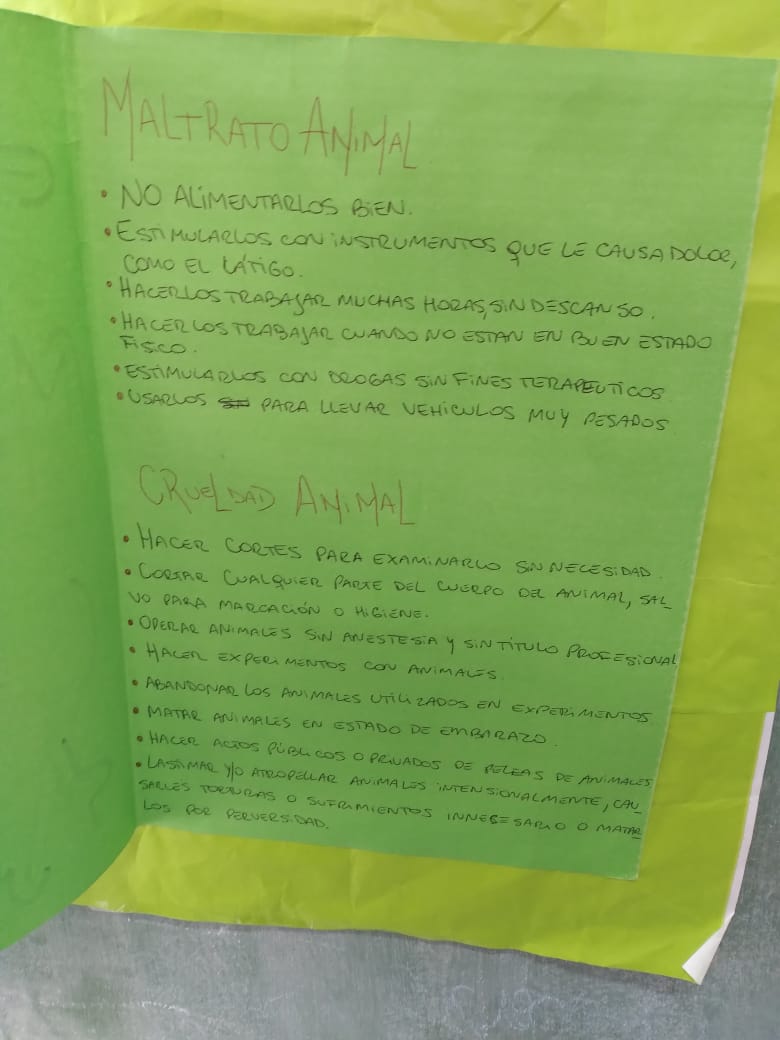 MALTRATO ANIMAL
• NO ALIMENTARLOS BIEN.
• ESTIMULARLOS CON INSTRUMENTOS QUE LE CAUSA DOLOR,
COMO EL LÁTIGO.
• HACERLOS TRABAJAR MUCHAS HORAS, SIN DESCANSO.
• HACERLOS TRABAJAR CUANDO NO ESTAN EN BUEN ESTADO
FISICO.
• ESTIMULARLOS CON DROGAS SIN FINES TERAPEUTICOS
• USARLOS PARA LLEVAR VEHICULOS MUY PESADOS
CRUELDAD ANIMAL
• HACER CORTES PARA EXAMINARLO SIN NECESIDAD.
• CORTAR CUALQUIER PARTE DEL CUERPO DEL ANIMAL, SAL_
VO PARA MARCACIÓN O HIGIENE.
• OPERAR ANIMALES SIN ANESTESIA Y SIN TÍTULO PROFESIONAL
• HACER EXPERIMENTOS CON ANIMALES.
• ABANDONAR LOS ANIMALES UTILIZADOS EN EXPERIMENTOS
• MATAR ANIMALES EN ESTADO DE EMBARAZO.
• HACER ACTOS PÚBLICOS O PRIVADOS DE PELEAS DE ANIMALES
• LASTIMAR Y/O ATROPELLAR ANIMALES INTENSIONALMENTE, CAU_
SARLES TORTURAS O SUFRIMIENTOS INNECESARIO O MATAR
LOS POR PERVERSIDAD.